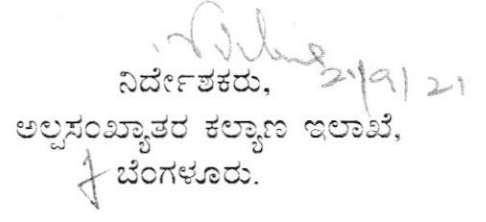 21/9/21
ನಿರ್ದೇಶಕರು,
ಅಲ್ಪಸಂಖ್ಯಾತರ ಕಲ್ಯಾಣ ಇಲಾಖೆ,
ಬೆಂಗಳೂರು.